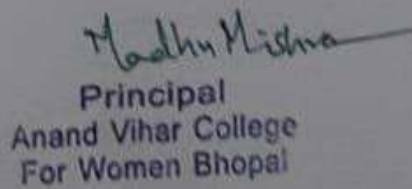 Madhu Mishra
Principal
Anand Vihar College
For Women Bhopal